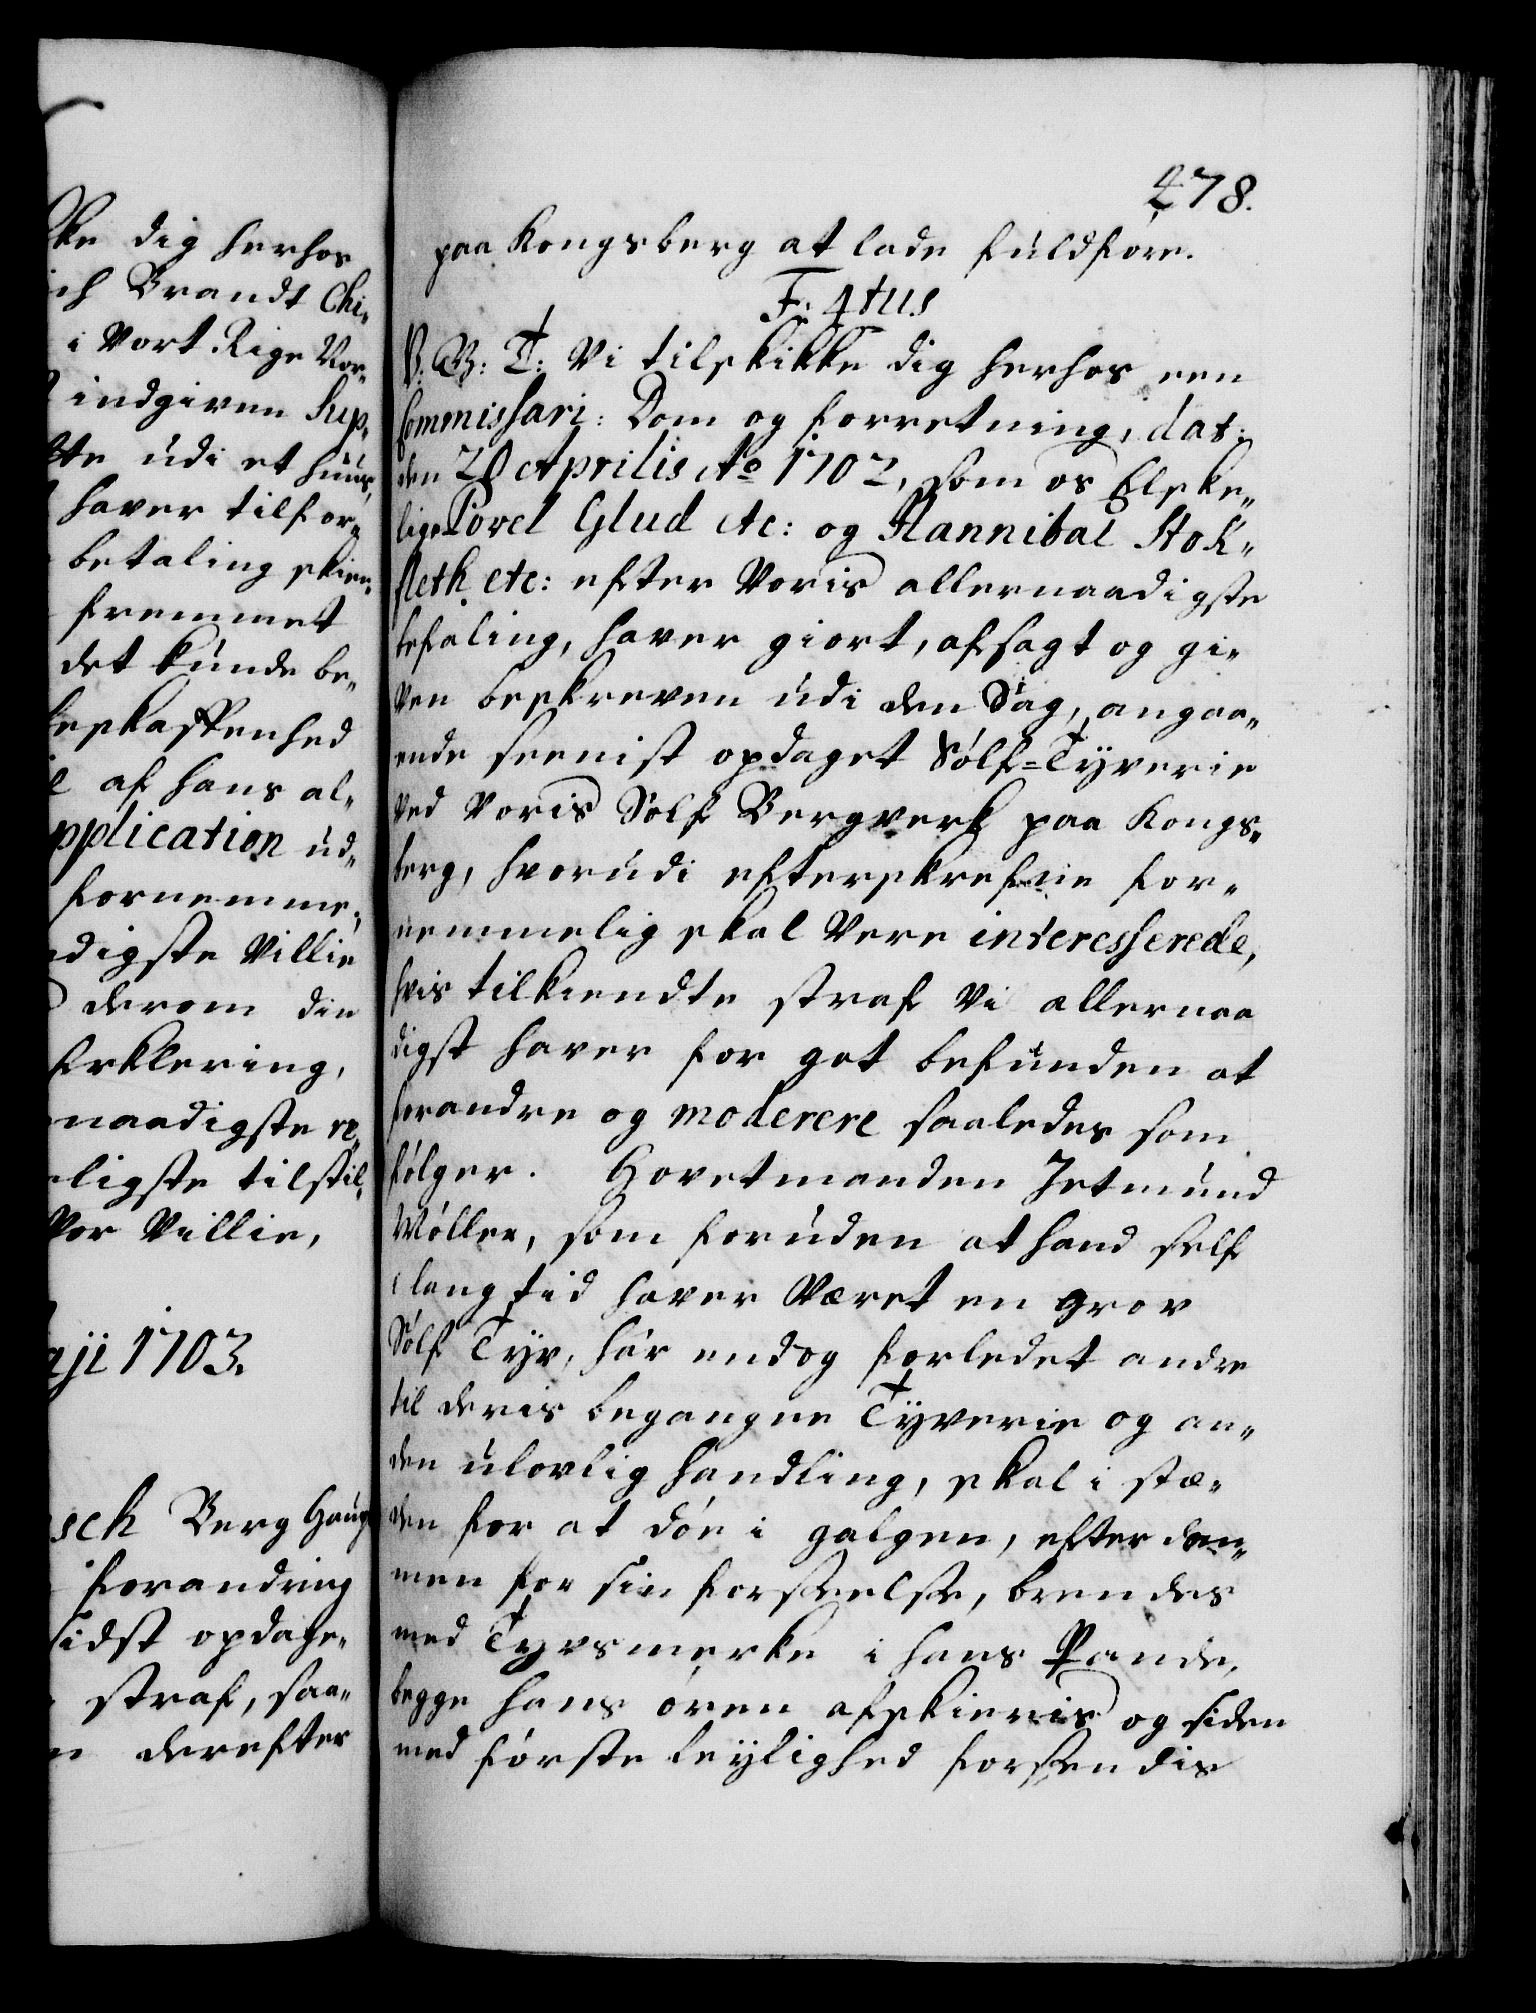 ke dig herhos
ich Brandt Chi„
i Vort Rige Nor„
indgiven Sup„
te udi et huus,
haver tilfor„
betaling skien„
fremmet
det kunde be„
beskaffenhed
af hans al„
pplication ud„
fornemme,
digste Villie
derom din
Erklering,
naadigste re„
ligste tilstil„
Vor Villie,
aji 1703.
sch Berg Haupt
forandring
sidst opdage„
straf, saa„
derefter
478.
paa Kongsberg at lade fuldføre.
F: 4tus
V. G: T: Vi tilskikke dig herhos een
Commissari: Dom og forretning, dat:
den 20 Aprilis Ao 1702, som os Elske„
lige Povel Glud etc: og Hannibal Stok„
fleth etc: efter Voris allernaadigste
befaling, haver giort, afsagt og gi„
ven beskreven udi den Sag, angaa„
ende seenist opdaget Sølf=Tyverie
ved Voris Sølf Bergverk paa Kongs„
berg, hvorudi efterskrefne for„
nemmelig skal Vere interesserede,
hvis tilkiendte straf Vi allernaa
digst haver for got befunden at
forandre og moderere saaledes som
følger. Hovetmanden Jetmund
Møller, som foruden at hand self
i lang tid haver Været en grov
Sølf Tyv, har endog forledet andre
til deris begangne Tyverie og an„
den ulovlig handling, skal i stæ„
den for at døe i galgen, efter dom„
men for sin forseelse, brendes
med Tyvsmerke i hans Pande,
begge hans øren afskieris og siden
med første leylighed forsendis